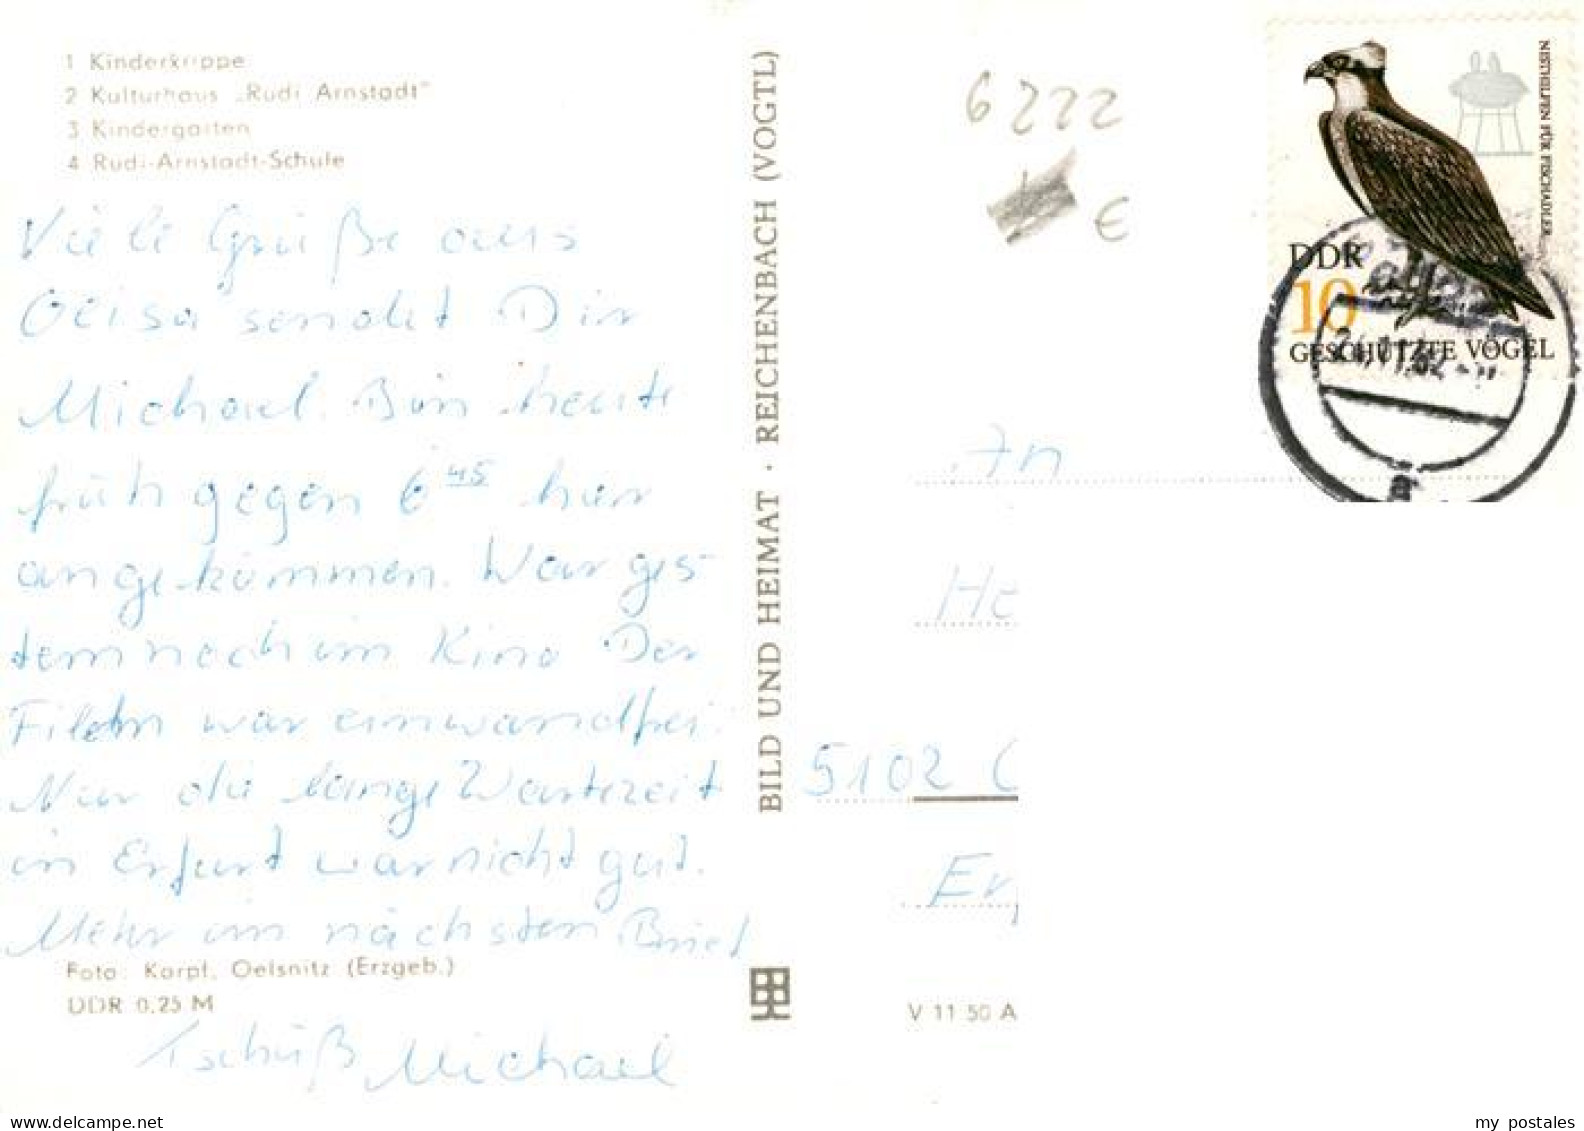 1 Kinderkrippe
2 Kulturhaus „Rudi Arnstadt"
3 Kindergarten
4 Rudi-Arnstadt-Schule
Viele Grüße aus
Geisa sendet Dir
Michael. Bin heute
früh gegen 6 45 hier
angekommen. War ges-
tern noch im Kino Der
Film war einwandfrei.
Nur die lange Wartezeit
in Erfurt war nicht gut.
Mehr im nächsten Brief
Foto: Karpf, Oelsnitz (Erzgeb.)
DDR 0,25 M
Tschüß Michael
BILD UND HEIMAT · REICHENBACH (VOGTL)
6222
€
NISTHILFEN FÜR FISCHADLER
DDR
10
GESCHÜTZTE VÖGEL
a
An
He
5102
V 11 50 A
my postales